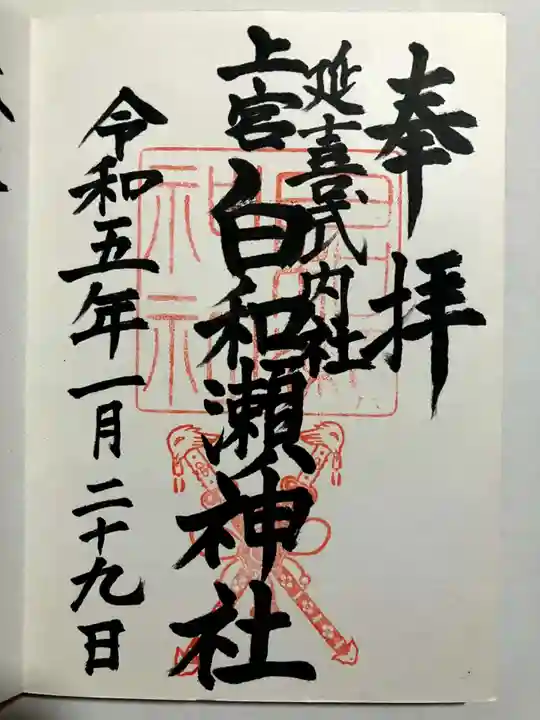 奉拝
延喜式内社
上宮
白和瀬神社
令和五年一月二十九日